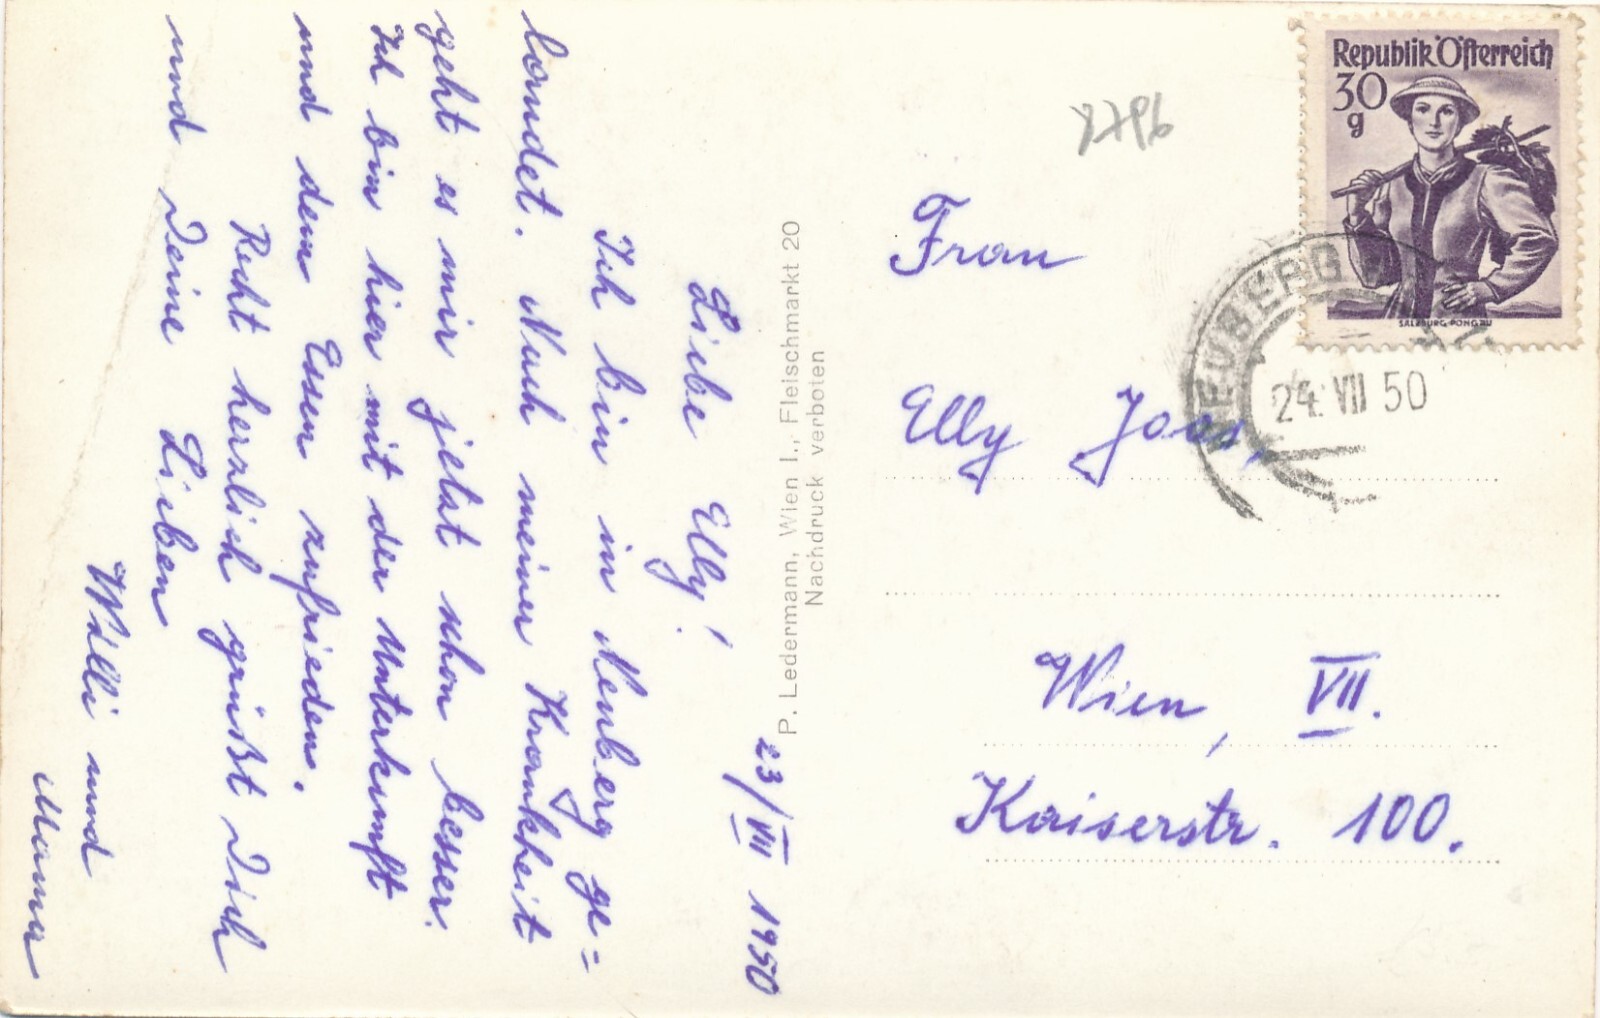 23/VII 1950
Liebe Elly!
Ich bin in Neuberg ge=
landet. Nach meiner Krankheit
geht es mir jetzt schon besser.
Ich bin hier mit der Unterkunft
und dem Essen zufrieden.
Recht herzlich grüßt Dich
und Deine Lieben
Willi und
Mama
P. Ledermann, Wien I., Fleischmarkt 20
Nachdruck verboten
Republik Österreich
30
g
SALZBURG, PONGAU
NEUBERG
24. VII 50
Frau
Elly Joos,
Wien, VII.
Kaiserstr. 100.